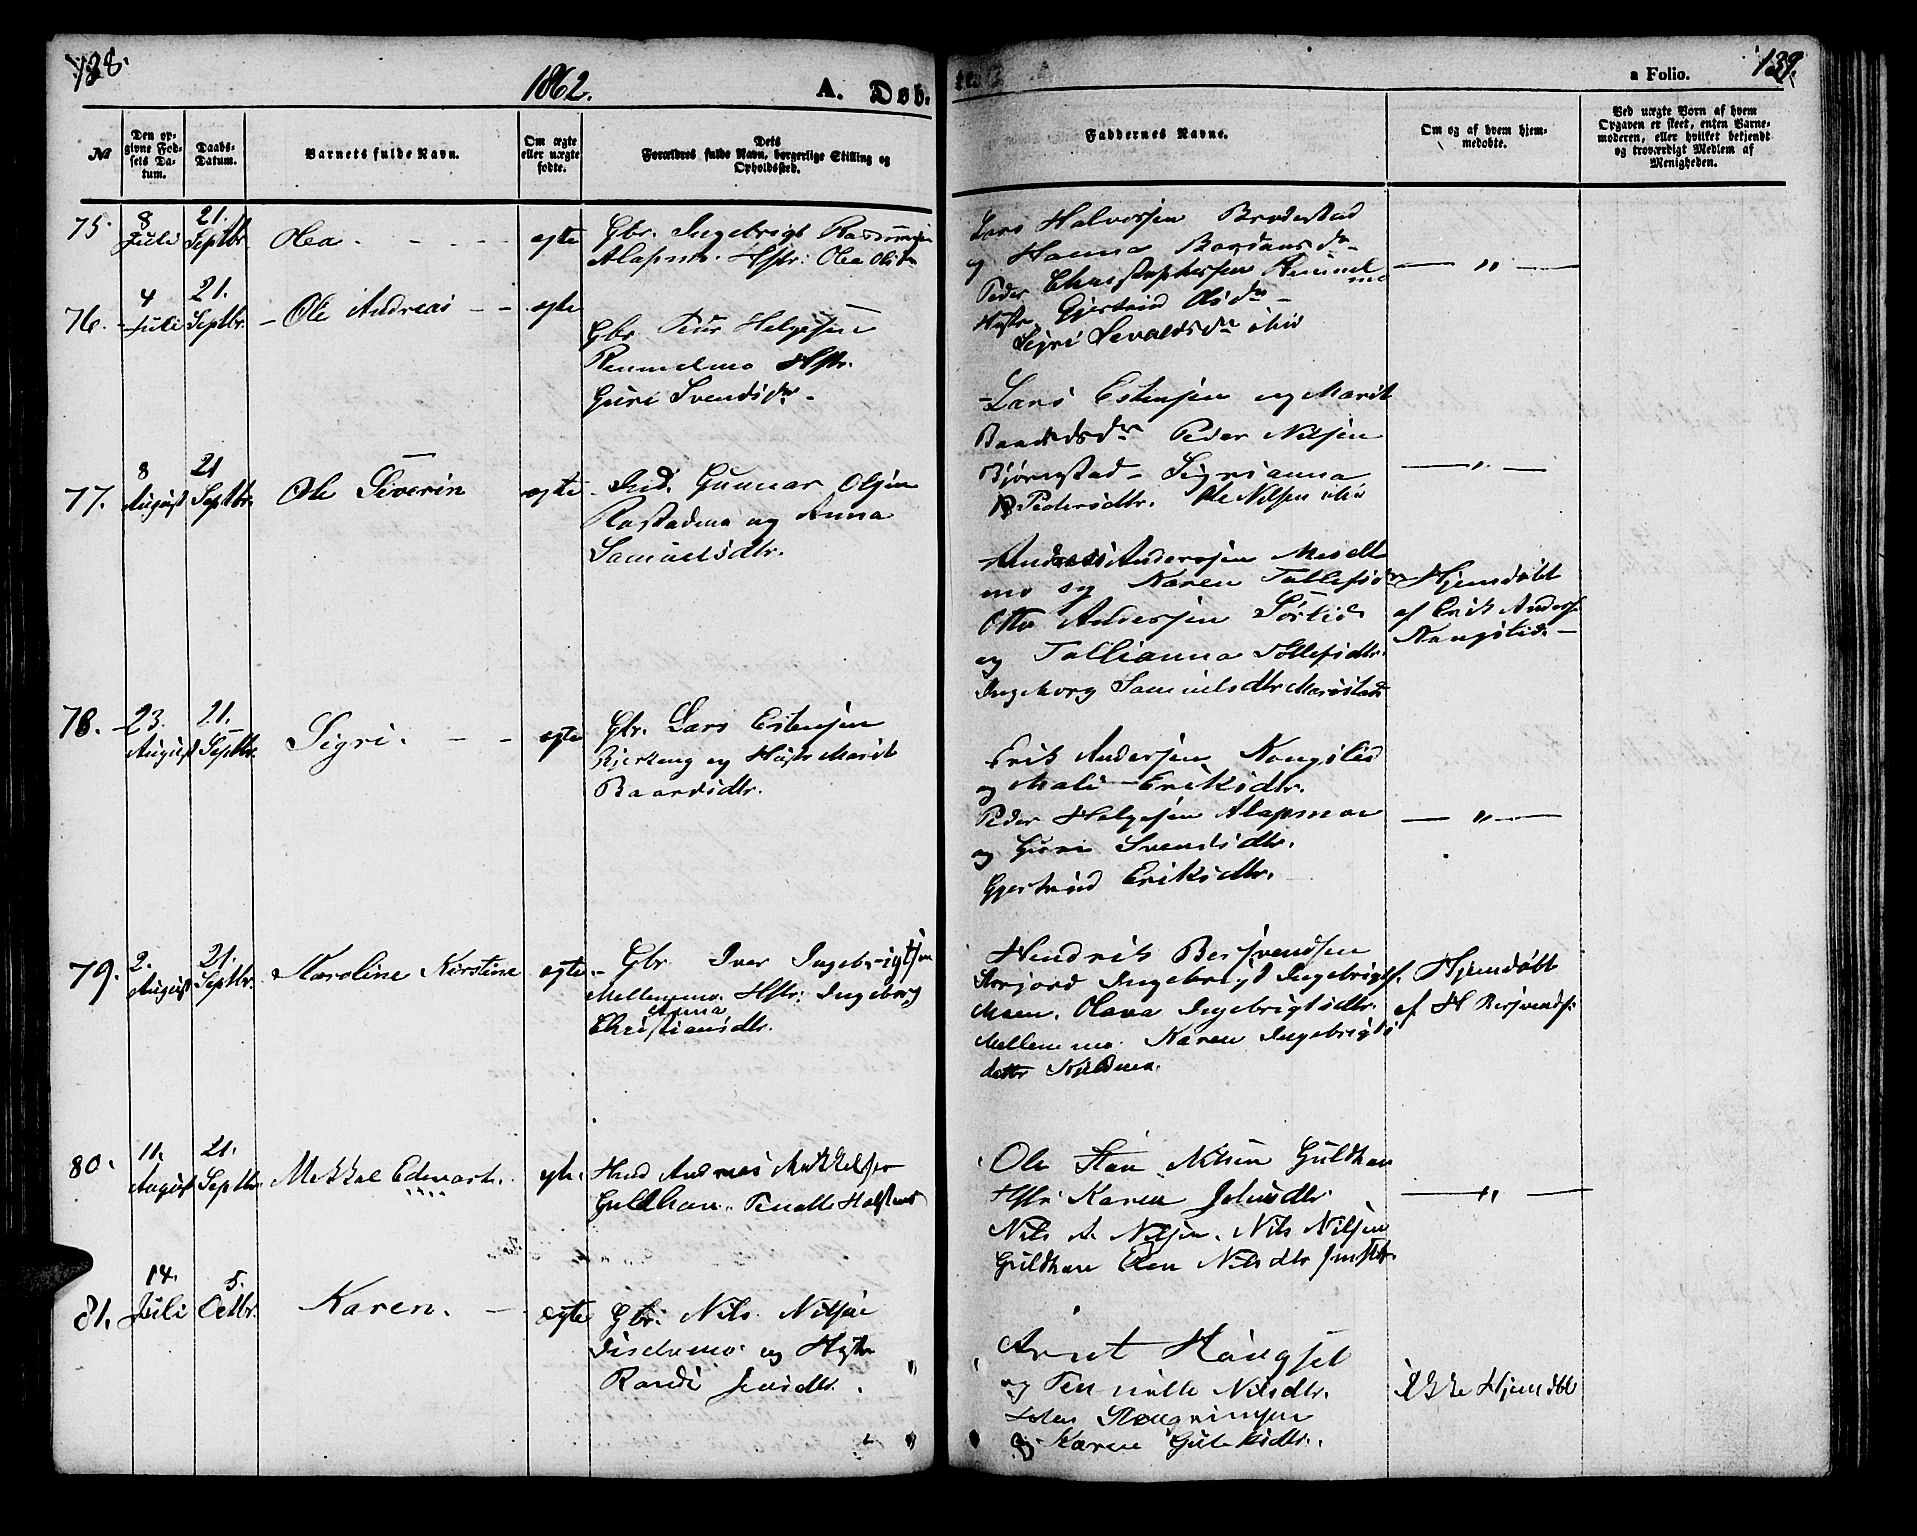 138.
1862.
A. Døb.
a Folio.
139.
No
Den op-
givne Fød-
sels Da-
tum.
Daabs-
Datum.
Barnets fulde Navn.
Om ægte
eller uægte
fødte.
Dets
Forældres fulde Navn, borgerlige Stilling og
Opholdssted.
Faddernes Navne.
Om og af hvem hjem-
medøbte.
Ved uægte Børn af hvem
Opgaven er skeet, enten Barne-
moderen, eller hvilket bekjendt
og troværdigt Medlem af
Menigheden.
75. 8 Juli 21. Septbr. Olea. egte
Gbr. Ingebrigt
Alapmo. Hstr: Olea Olsdr
Lars Halvorsen Brodestad
og Hanna Bardunsdr
Peder Christophersen
Hstr. Gjertrud Olsdr
Sigri Sevaldsdr ibid
— " —
76. 4 Juli 21. Septbr. Ole Andreas egte
Gbr. Peur Helgesen
Remmelmo Hstr.
Guri Svendsdr
Lars Estensen og Marit
Baardsdr Peder Nilsen
Bjørnstad Sigrianna
Pedersdtr. Ole Nilsen ibid
— " —
77. 8 August 21 Septbr. Ole Siverin egte
Ind. Gunnar Olsen
Rastadmo og Anna
Samuelsdtr.
Andreas Andersen
mo og Karen
Otto Andersen Sørlid
og Tollianna Tollefsdtr.
Ingeborg Samuelsdtr
Hjemdøbt
af Erik Anders.
Kongslid.
78. 23. August 21. Septbr. Sigri. egte
Gbr. Lars Estensen
Bjerkeng og Hustr Marit
Baardsdtr.
Erik Andersen Kongslid
og Mali Eriksdtr.
Peder Helgesen Alapmoe
og Guri Svendsdtr.
Gjertrud Eriksdtr.
— " —
79. 2. August 21. Septbr. Karoline Kirstine egte
Gbr Iver Ingebrigtsen
Mellemmo. Hstr: Ingeborg
Anna
Christiansdtr.
Hendrik Bersvendsen
Storjord Ingebrigt Ingebrigts.
Moen. Olava Ingebrigtsdtr.
Mellemmo. Karen Ingebrigts
datter
Hjemdøbt
af H Bersvends:
80. 11. August 21. Septbr. Mekkal Edevart. egte.
Huusd Andreas Mekkelsen
Guldhav. Pernelle
Ole Stan Nilsen Guldhav
Hstr. Karen Johnsdtr
Nils A Nilsen. Nils Nilsen
Guldhav Elen Nilsdtr
— " —
81. 14. Juli 5. Octbr. Karen. egte
Gbr: Nils Nilsen
og Hustr
Randi Jensdtr.
Arnt Haugset
og Pernille Nilsdtr.
Steengrimsen
og Karen
Ikke Hjemdøbt